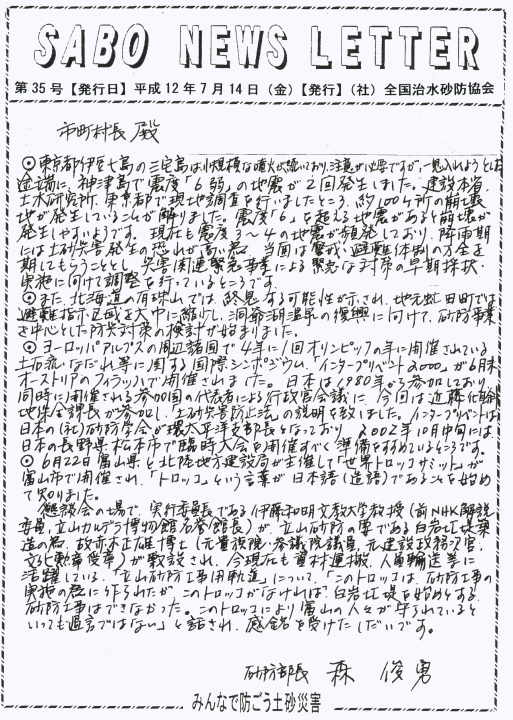 SABO NEWS LETTER
第35号【発行日】平成12年7月14日（金）【発行】（社）全国治水砂防協会
市町村長 殿
◎東京都伊豆七島の三宅島は小規模な噴火が続いており、注意が必要ですが、一息入れようとした
途端に、神津島で震度「6弱」の地震が2回発生しました。建設本省、
土木研究所、東京都で現地調査を行いましたところ、約100ヶ所の崩壊
地が発生していることが解りました。震度「6」を超える地震があると崩壊が
発生しやすいようです。現在も震度3～4の地震が頻発しており、降雨期
には土砂災害発生の恐れが高い為、当面は警戒・避難体制の万全を
期してもらうこととし、災害関連緊急事業による緊急な対策の早期採択・
実施に向けて調整を行っているところです。
◎また、北海道の有珠山では、終息する可能性が示され、地元虻田町では
避難指示区域を大巾に縮小し、洞爺湖温泉の復興に向けて、砂防事業
を中心とした防災対策の検討が始まりました。
◎ヨーロッパアルプスの周辺諸国で4年に1回オリンピックの年に開催されている
土石流、なだれ等に関する国際シンポジウム、「インタープリベント2000」が6月末
オーストリアのフィラッハで開催されました。日本は1980年から参加しており、
同時に開催される参加国の代表者による行政官会議に、今回は近藤
地保全課長が参加し、「土砂災害防止法」の説明を致しました。インタープリベントは
日本の（社）砂防学会が環太平洋支部長となっており、2002年10月中旬には
日本の長野県松本市で臨時大会を開催すべく準備をすすめているところです。
◎6月22日富山県と北陸地方建設局が主催して「世界トロッコサミット」が
富山市で開催され、「トロッコ」という言葉が日本語（造語）であることを始め
て知りました。
懇談会の場で、実行委員長である伊藤和明文教大学教授（前NHK解説
委員、立山カルデラ博物館名誉館長）が、立山砂防の要である白岩堰堤築
造の名、故赤木正雄博士（元貴族院・参議院議員、元建設政務次官、
文化勲章受章）が敷設され、今現在も資材運搬、人員輸送等に
活躍している、「立山砂防工事用軌道」について、「このトロッコは、砂防工事の
実施の為に作られたが、このトロッコがなければ、白岩堰堤を始めとする
砂防工事はできなかった。このトロッコにより富山の人々が守られていると
いっても過言ではない」と話され、感銘を受けたしだいです。
砂防部長 森 俊勇
みんなで防ごう土砂災害